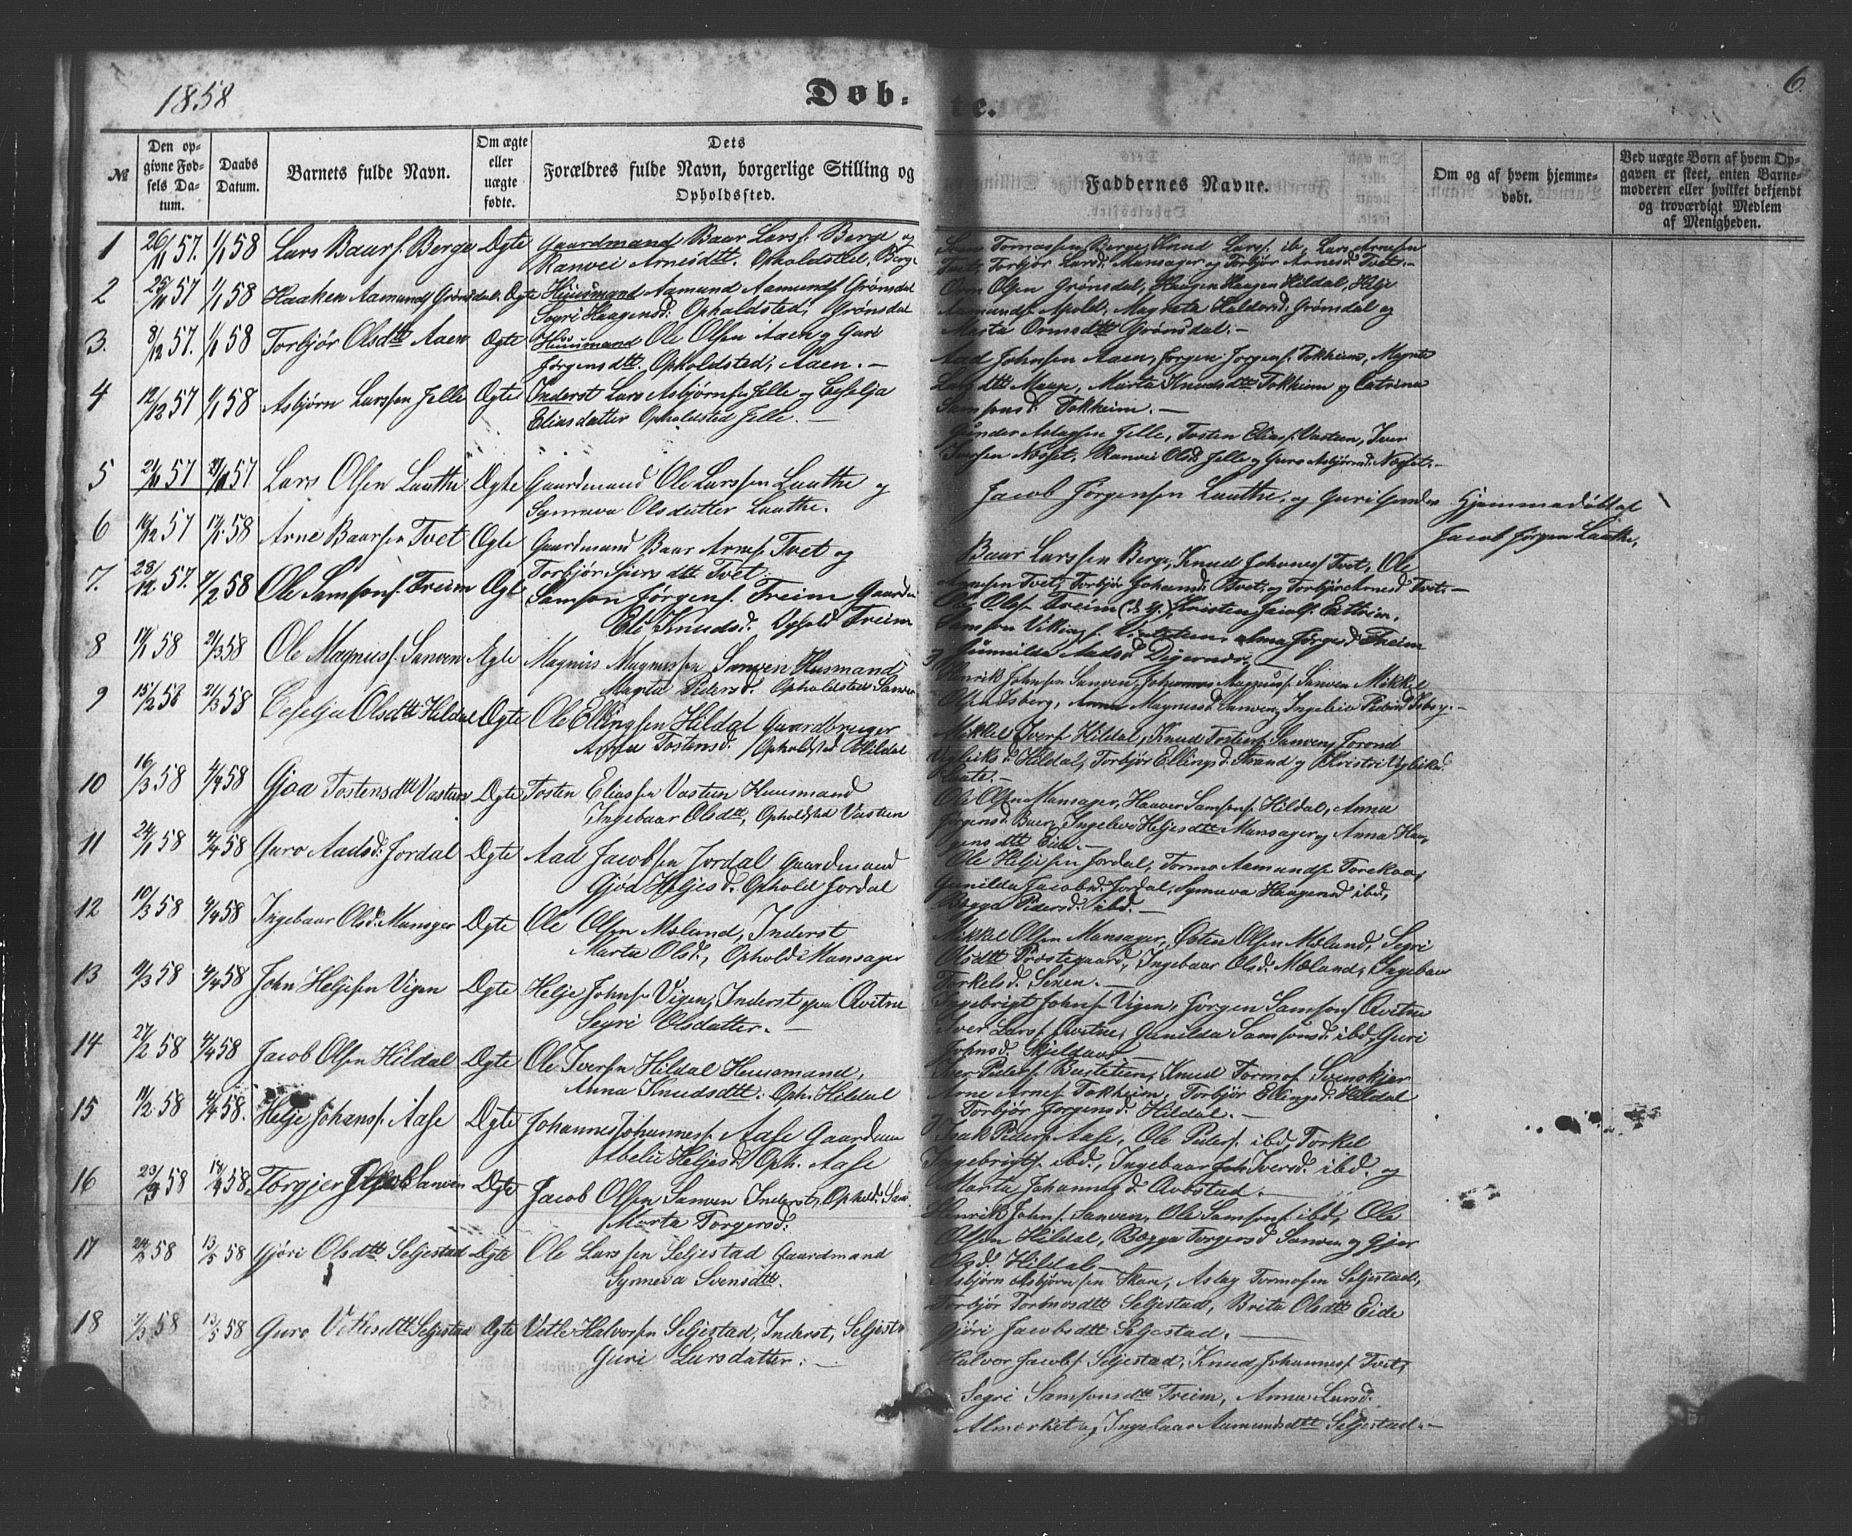 1858
Døb-
te.
6.
№
Den opgivne Fødsels Datum.
Daabs Datum.
Barnets fulde Navn.
Om ægte eller uægte fødte.
Dets Forældres fulde Navn, borgerlige Stilling og Opholdssted.
Faddernes Navne.
Om og af hvem hjemmedøbt.
Ved uægte Børn af hvem Opgaven er skeet, enten Barnemoderen eller hvilket bekjendt og troværdigt Medlem af Menigheden.
1 26/11 57. 1/1 58 Lars Baars. Berge Ægte Gaardmand Baar Lars. Berge og
Ranvei Arnesdtt. Opholdsted, Berge
Tormossen Berge, Knud Larss. ib, Lars Arnesen
Tvet, Torbjør Larsd. Mansager og Torbjør Arnesd. Tvet.-
2 25/11 57 1/1 58 Haaken Aamunds Grønsdal. Ægte Huusmand Aamund Aamunds Grønsdal
Sygri Haagensd. Opholdsted, Grønsdal
Orm Olsen Grønsdal, Haagen Haagen Hildal, Helje
Aamunds. Apold, Magreta Haldorsd. Grønsdal og
Marta Ormsdtt Grønsdal.-
3. 8/12 57. 1/1 58 Torbjør Olsdtt Aaen Ægte Huusmand Ole Olsen Aaen og Guri
Jørgensdtt. Opholdsted, Aaen.-
Aad Johnsen Aaen, Jørgen Jørgens. Tokheim, Magrete
Larsdtt Mauge, Marta Knudsdtt Tokheim og Catrina
Samsonsd. Tokheim.-
4 12/12 57 1/1 58 Asbjørn Larssen Jelle Ægte Inderst Lars Asbjørns. Jelle og Ceselja
Eliasdatter Opholdsted Jelle.-
Gunder Aslagsen Jelle, Tosten Elias. Vastun, Iver
Iversen Nøset. Ranvei Olsd. Jelle og Guro Asbjørnsd. Nøset.-
5 21/11 57 Lars Olsen Lauthe Ægte Gaardmand Ole Larssen Lauthe og
Synneva Olsdatter Lauthe.
Jacob Jørgensen Lauthe, og Guri
Hjemmedøbt af
Jacob Jørgen Lauthe,
6 57 17/1 58 Arne Baarsen Tvet Ægte Gaardmand Baar Arnes. Tvet og
Torbjør Tvet.
Baar Larssen Berge, Knud Johannes. Tvet, Ole
Arnesen Tvet, Torbjør Johannsd. Tvet, og Torbjør Arnesd Tvet.-
7. 28/12 57. 7/2 58 Ole Samsons. Freim Ægt Samson Jørgens. Freim Gaardm
Knudsd. Ophold Freim
Ole Olsen Freim
8 58 21/3 58 Ole Magnuss. Sanven Ægte Magnus Magnussen Sanven Husmand
Magta Pedersd. Opholdsted Sanven
Henrik Johnsen Sanven, Johannes Magnuss. Sanven Mikkel
Magnusd. Sanven, Ingeleiv
9 15/2 58 21/3 58 Ceselja Olsdtt Hildal Ægte Ole Ellingsen Hildal Gaardbruger
Anna Tostensd. / Opholdsted Hildal
Mikkel Ivers. Hildal, Knud Tostens. Sanven, Torond
Hildal, Torbjør Ellingsd. Strand og
10 16/3 58 4/4 58 Gjoa Tostensdtt Vastun Ægte Tosten Eliassen Vastun Huusmand
Ingebaar Olsdtt, Opholdsted Vastun
Ole Olsen Mansager, Haaver Samsons. Hildal, Anna
Jørgensd. Buer, Ingeleiv Heljesdtt Mansager og Anna
Eide.-
11 24/1 58 4/4 58 Guro Aadsd. Jordal Ægte Aad Jacobsen Jordal Gaardmand
Gjøa Heljesd. Ophold Jordal
Ole Heljesen Jordal, Tormo Aamunds.
Gunilda Jacobsd. Jordal, Synneva Haagensd ibd,
Bøgga Pedersd. ibd.-
12 10/3 58 4/4 58 Ingebaar Olsd. Mansager Ægte Ole Olsen Mæland, Inderst
Marta Olsd., Ophold: Mansager
Mikkel Olsen Mansager, Østen Olsen Mæland, Segri
Olsdtt Prøstegaard, Ingebaar Olsd. Mæland, Ingebaar
Torkelsd. Sexen.-
13 11/3 58 4/4 58 John Heljesen Vigen Ægte Helje Johns. Vigen, Inderst paa Qvitne
Segri Olsdatter.-
Ingebrigt Johns. Vigen, Jørgen Samsons Qvitne
Iver Lars. Qvitne, Gunilda Samsonsd. ibd, Guri
Johnsd. Skjeldaas
14 27/2 58 4/4 58 Jacob Olsen Hildal Ægte Ole Iversen Hildal Huusmand,
Anna Knudsdtt. Oph. Hildal
Iver Peders. Bustetun, Knud Tormos. Svenskjer
Arne Arnes. Tokheim, Torbjør Ellingsd. Hildal
Torbjør Jørgensd. Hildal.-
15 11/2 58 4/4 58. Helje Johans. Aase Ægte Johannes Johanness. Aase Gaardman
Abelu Heljesd. Oph. Aase
Isak Peders. Aase, Ole Peders. ibd Torkel
Ingebrigts. ibd., Ingebaar Iversd. ibd. og
Marta Johannesd.
16 23/3 58 18/4 58 Torgjer Sanven Ægte Jacob Olsen Sanven Inderst, Ophold: San
Marta Torgersd.
Henrik Johns. Sanven, Ole Samsons. ibd, Ole
Olsen Hildal, Bøgga Torgersd Sanven og Gjør
Olsd. Hildal.-
17 58 13/5 58 Gjøri Olsdtt Seljestad Ægte Ole Larssen Seljestad Gaardmand
Synneva Svensdtt.
Asbjørn Asbjørnsen Skare, Aslag Tormosen Seljestad,
Torbjør Tormosdtt Seljestad, Brita Olsdtt Eide
Gjøri Jacobsdtt Seljestad.-
18 7/5 58 13/5 58 Guro Vetlesdtt Seljestad Ægte Vetle Halvorsen Seljestad, Inderst, Seljest
Guri Larsdatter.-
Halvor Jacobs. Seljestad, Knud Johanness. Tvet,
Segri Samsonsdtt Freim, Anna Larsd.
Almerket og Ingebaar Aamundsdtt Seljestad.-